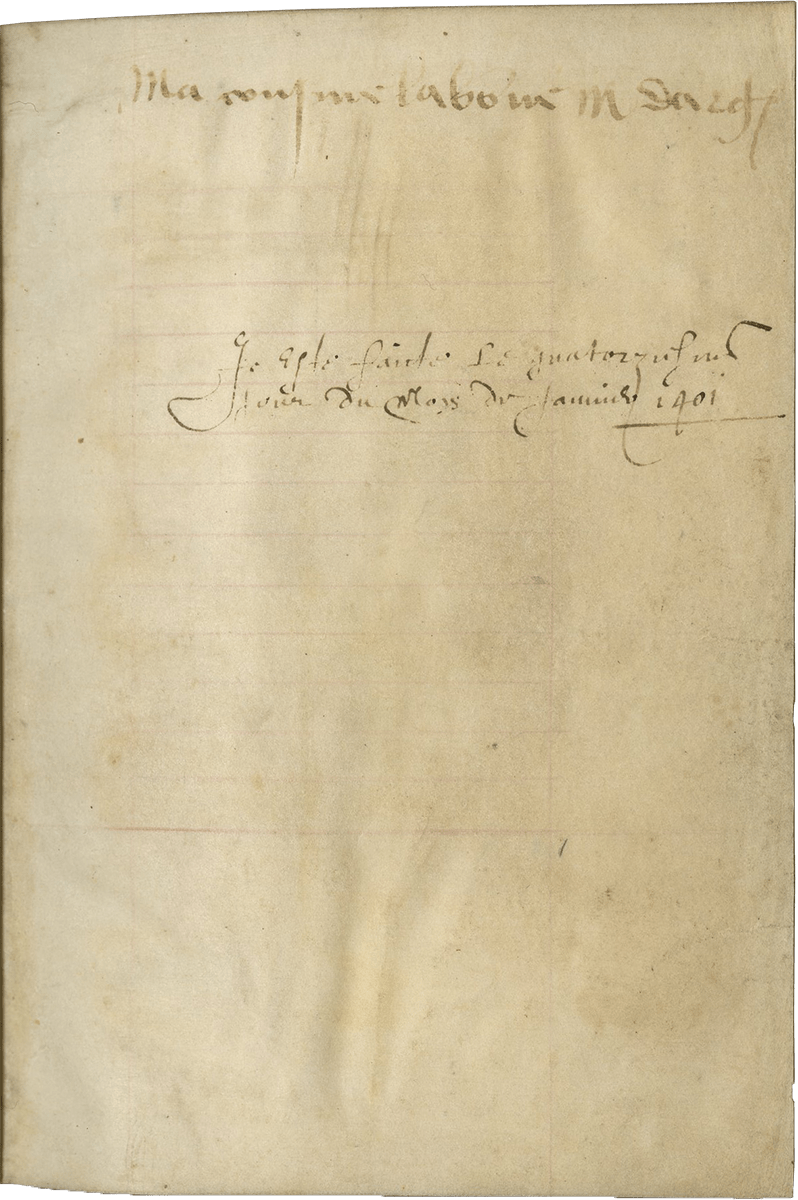 Ma cousine la bonne M Darg
Je Este faicte Le quatorziesme
Jour du Moys de Januier 1401